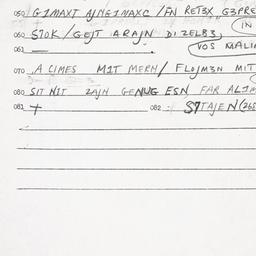 050 G1MAXT AJNG1MAXC /FN RETSX G3PRE
(IN
060 S10K / GEJT ARAJN DI ZELB3
061 — . (VOS MALI
070 A LIMES M1T MERN / FLOJM3N MIT
080 SIT NIT ZAJN GENUG ESN FAR AL1M
081 + 082 : STAJEN (265